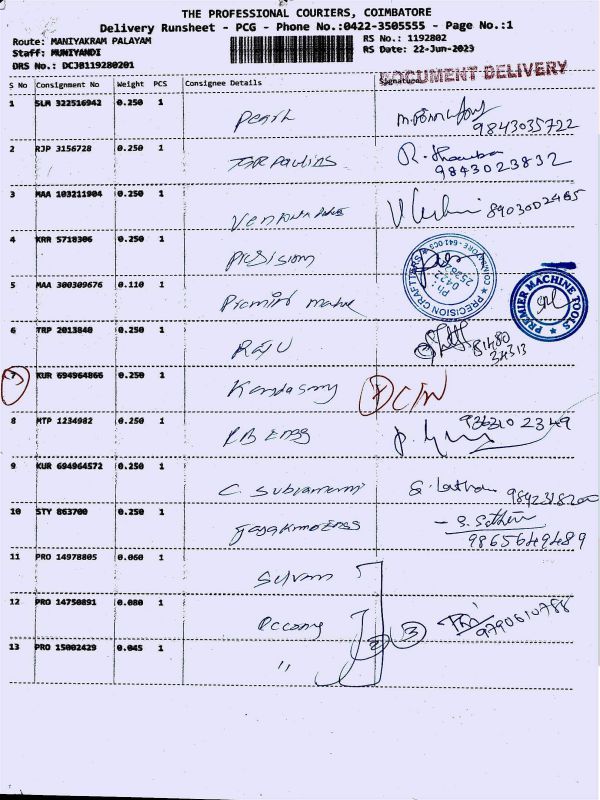 THE PROFESSIONAL COURIERS, COIMBATORE
Delivery Runsheet - PCG - Phone No.:0422-3505555 - Page No.:1
Route: MANIYAKRAM PALAYAM
RS No.: 1192802
Staff: MUNIYANDI
RS Date: 22-Jun-2023
DRS No.: DCJB119280201
DOCUMENT DELIVERY
S No Consignment No Weight PCS Consignee Details Signature
1 SLM 322516942 0.250 1 Pearl
9843035722
2 RJP 3156728 0.250 1 Tarpaulins R.
9843023832
3 MAA 103211904 0.250 1 8903002465
4 KRR 5718306 0.250 1 Precision
PRECISION CRAFTERS
COIMBATORE - 641 005
Ph 0422
5 MAA 300309676 0.110 1 Premier
PREMIER MACHINE TOOLS
6 TRP 2013840 0.250 1 Raju 81480
34313
7 KUR 694964866 0.250 1 Kandasamy
8 MTP 1234982 0.250 1 RB Engg 936310 2349
9 KUR 694964572 0.250 1 C. Subramani S. Latha 9842318200
10 STY 863700 0.250 1 S. Sathini
9865649489
11 PRO 14978805 0.060 1 Selvam
12 PRO 14750891 0.080 1 2 3 9790610788
13 PRO 15002429 0.045 1 "